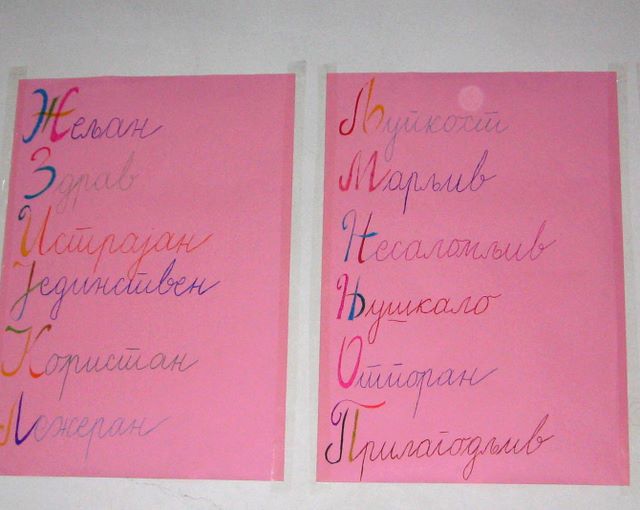 Жељан
Здрав
Истрајан
Јединствен
Користан
Лежеран
Љупкост
Марљив
Несаломљив
Њушкало
Отпоран
Прилагодљив